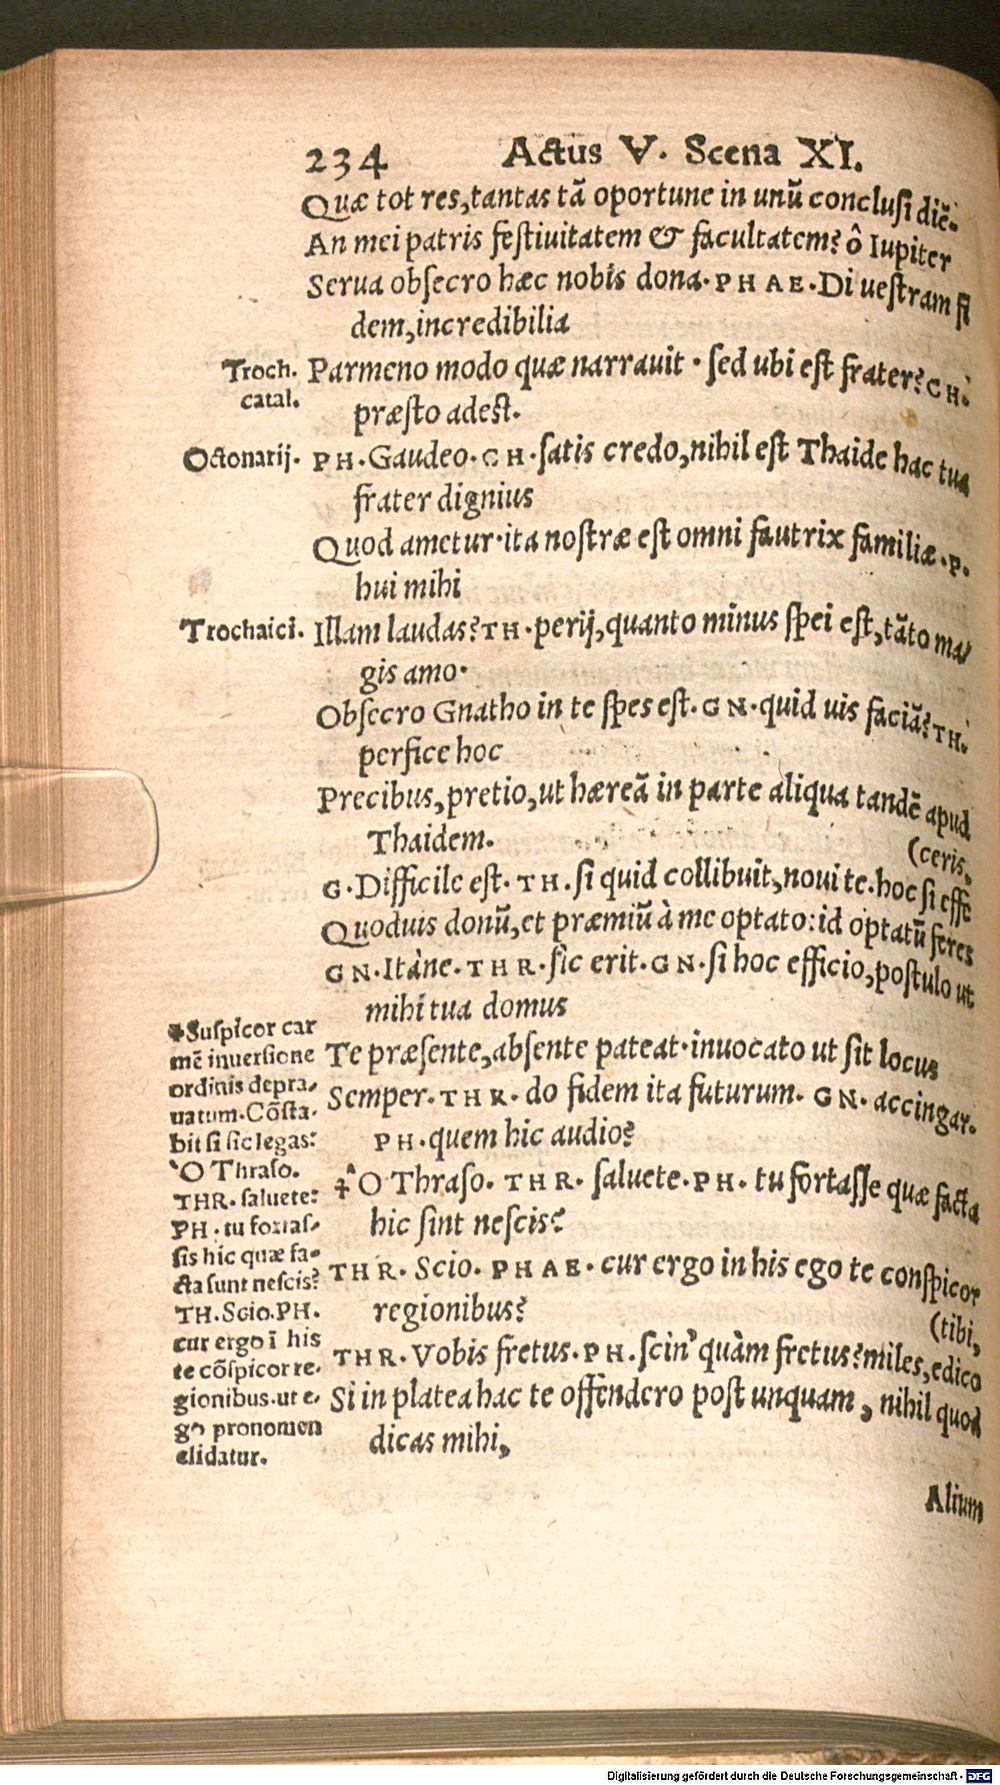 234 Actus V. Scena XI.
Quæ tot res, tantas tã oportune in unũ conclusi diẽ.
An mei patris festiuitatem & facultatem? ô Iupiter
Serua obsecro hæc nobis dona. PHAE. Di uestram fi
dem, incredibilia
Troch. catal.
Parmeno modo quæ narrauit. sed ubi est frater? CH.
præsto adest.
Octonarij.
PH. Gaudeo. CH. satis credo, nihil est Thaide hac tua
frater dignius
Quod ametur. ita nostræ est omni fautrix familiæ. P.
hui mihi
Trochaici.
Illam laudas? TH. perij, quanto minus spei est, tãto ma/
gis amo.
Obsecro Gnatho in te spes est. GN. quid uis faciã? TH.
perfice hoc
Precibus, pretio, ut hæreã in parte aliqua tandẽ apud
Thaidem.
(ceris,
G. Difficile est. TH. si quid collibuit, noui te. hoc si effe
Quoduis donũ, et præmiũ à me optato: id optatũ feres
GN. Itáne. THR. sic erit. GN. si hoc efficio, postulo ut
mihi tua domus
Te præsente, absente pateat. inuocato ut sit locus
Semper. THR. do fidem ita futurum. GN. accingar.
PH. quem hic audio?
☨ Ô Thraso. THR. saluete. PH. tu fortasse quæ facta
hic sint nescis?
THR. Scio. PHAE. cur ergo in his ego te conspicor
regionibus?
(tibi,
THR. Vobis fretus. PH. scin' quàm fretus? miles, edico
Si in platea hac te offendero post unquam, nihil quod
dicas mihi,
Alium
✤Suspicor car
mẽ inuersione
ordinis depra/
uatum. Cõsta.
bit si sic legas:
Ò Thraso.
THR. saluete:
PH. tu fortas/
sis hic quæ fa/
cta sunt nescis?
TH. Scio. PH.
cur ergo ĩ his
te cõspicor re/
gionibus. ut e/
go pronomen
elidatur.
Digitalisierung gefördert durch die Deutsche Forschungsgemeinschaft - DFG